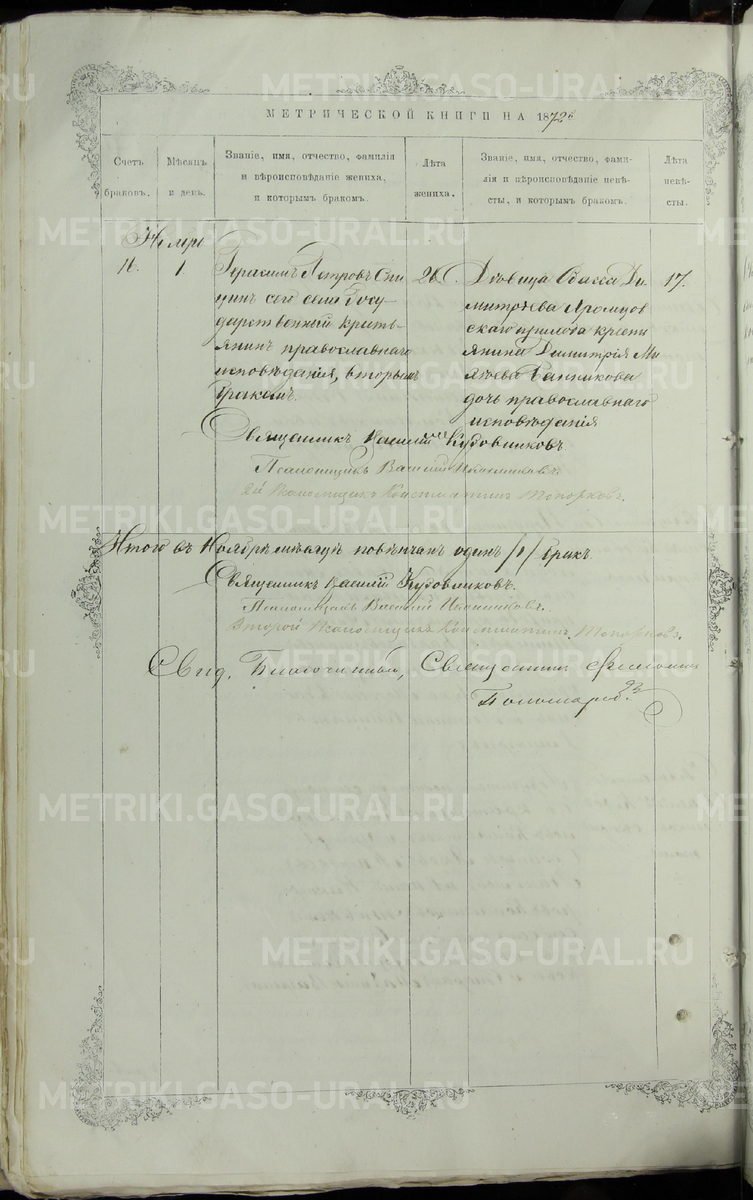 МЕТРИЧЕСКОЙ КНИГИ НА 1872й
Счетъ браковъ.
Мѣсяцъ и день.
Званіе, имя, отчество, фамилія
и вѣроисповѣданіе жениха,
и которымъ бракомъ.
Лѣта жениха.
Званіе, имя, отчество, фами-
лія и вѣроисповѣданіе невѣ-
сты, и которымъ бракомъ.
Лѣта невѣ-
сты.
16. 1
Герасимъ Петровъ Спи
цинъ сего села Госу-
дарственный кресть-
янинъ православнаго
исповѣданія, вторымъ
бракомъ.
26.
Дѣвица Ди-
митріева
скаго прихода кресть
янина Димитрія Ми
хѣева Банникова
дочь православнаго
исповѣданія
17.
Священникъ Василій Кудовниковъ.
Псаломщикъ Василій
2й Псаломщикъ Константинъ Топорковъ.
Итого въ Ноябрѣ мѣсяцѣ повѣнчанъ одинъ /1/ бракъ.
Священникъ Василій Кудовниковъ.
Псаломщикъ Василій
Второй Псаломщикъ Константинъ Топорковъ.
Свид. Благочинный, Священникъ
Пономаревъ
METRIKI.GASO-URAL.RU